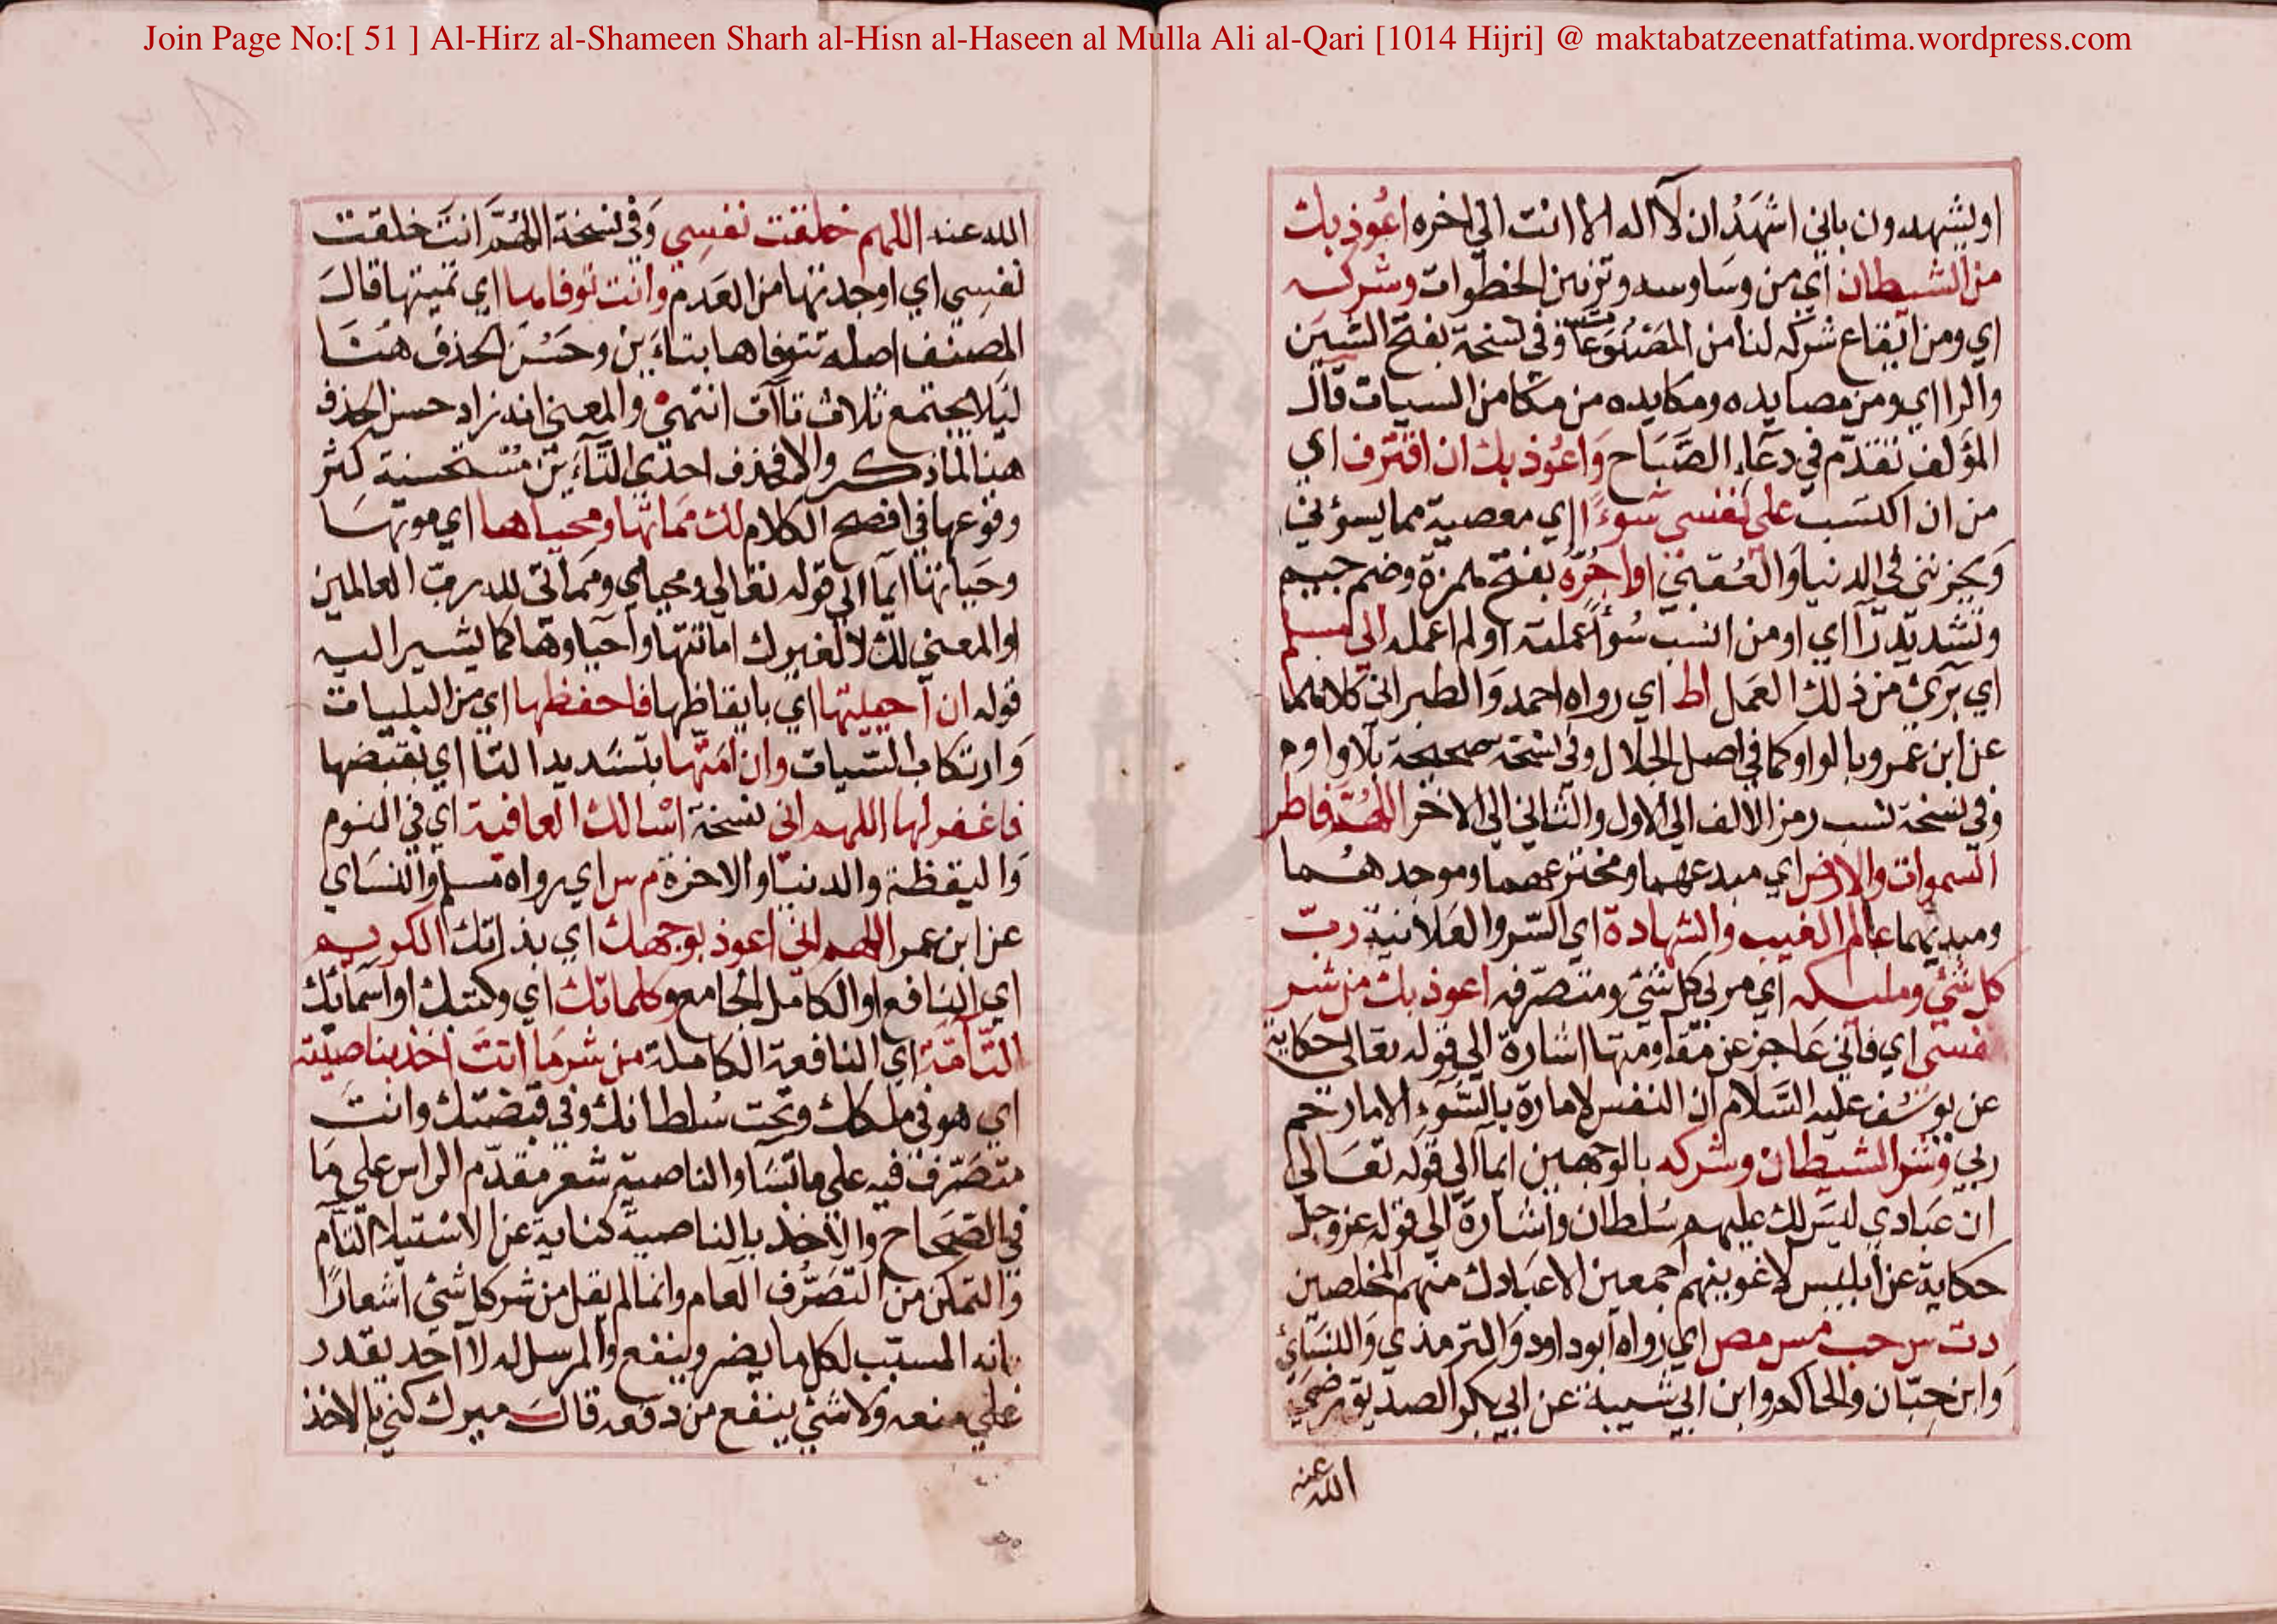 Join Page No:[ 51 ] Al-Hirz al-Shameen Sharh al-Hisn al-Haseen al Mulla Ali al-Qari [1014 Hijri] @ maktabatzeenatfatima.wordpress.com
اويشهدون باني اشهَدُ ان لآ اله الا انت الي اخره اعُوذ بك
من الشيطان اي من وسَاوسه وتزيين الخطوات وشركه
اي ومن ايقاع شركه لنا من وفي نسخة بفتح الشين
والرا اي ومن مصايده ومكايده من مكامن السيات قال
المؤلف تقدّم في دعآء الصَّبَاح وَاعُوذ بك ان اقترف اي
من ان اكتسَب على نفسي سُوءًا اي معصية مما يسؤني
وَيحزنني في الدنيا وَالعُقبي او اجُرَّه بفتح همزة وضم جيم
وتشديد رآ اي او من انسب سُوأً عملته او لم اعمله الي مسلم
اي بَرئ من ذلك العَمل اط اي رواه احمد وَالطبراني كلاهما
عن ابن عَمرو بالواو كما في اصل الجلال وفي نسخة صحيحة بلا واو
وفي نسخة نسب رمز الالف الي الاول والثاني الي الاخر اللهُمّ فاطر
السموات والارض اي مبدعهما ومخترعهما وموجدهُما
ومبديهما عالم الغيب والشهادة اي السّر والعَلانية ربّ
كل شئ ومليكه اي مربي كل شئ ومتصرّفه اعوذ بك من شر
نفسي اي فاني عَاجز عن مقاومتها اشارة الي قوله تعالى حكاية
عن يوسُف عليه السَّلام ان النفس لامارة بالسُّوء الا ما رحم
ربي وشر الشيطان وشركه بالوجهين ايمآ الي قوله تعَالى
ان عبَادي ليسَ لك عليهم سُلطان واشارة الي قوله عز وجل
حكاية عن ابليس لاغوينهم اجمعين الا عبَادك منهم المخلصين
دت س حب مس مص اي رواه ابو داود وَالترمذي وَالنسَائي
وَابن حبّان والحاكم وابن ابي شيبة عن ابي بكر الصديق رضي
الله عنه
الله عنه اللهم خلقت نفسِي وَفي نسخة اللهُمَّ انتَ خلقت
نفسِي اي اوجدتها من العَدم وانت توفاها اي تميتها قالَ
المصنف اصله تتوفاها بتاءَين وحَسُن الحذف هُنَا
ليَلا يجتمع ثلاث تاآت انتهي والمعنى انه زاد حسن الحذف
هنا لما ذكر والا فحذف احدي التَّآءَين مُسْتحسنة كثر
وقوعها في افصح الكلام لك ممَاتها ومحياها اي موتهَا
وحَياتها ايمآ الي قوله تعَالي ومحياي وممَاتي لله ربّ العالمين
او المعنى لك لا لغيرك اماتتها واحياوها كما يشير اليه
قوله ان آحييتها اي بايقاظها فاحفظها اي من البليات
وَارتكاب السّيات وان امَتّها بتشديد التا اي بقبضها
فاغفر لها اللهم اني نسخة اسْالك العافية اي في النوم
وَاليقظة والدنيا والاخرة م س اي رواه مسلم والنسَاي
عن ابن عمر اللهم اني اعوذ بوجهك اي بذاتك الكريم
اي النافع او الكامل الجامع وكلماتك اي وكتبك او اسمَائك
التآمَّة اي النافعة الكاملة من شر مَا انتَ اخذ بناصيته
اي هو في ملكك وتحت سُلطانك وفي قبضتك وانتَ
متصَرّف فيه علي ما تشَا والناصية شعر مقدّم الراس علي مَا
في الصّحَاح والاخذ بالناصية كناية عن الاستيلا التآم
وَالتمكن من التصَرُّف العام وانما لم يقل من شر كل شئ اشعارًا
بانه المسبّب لكل ما يضر وينفع والمرسل له لا احد يقدر
علي منعه ولا شئ ينفع من دفعه قالَ ميرك كني بالاخذ